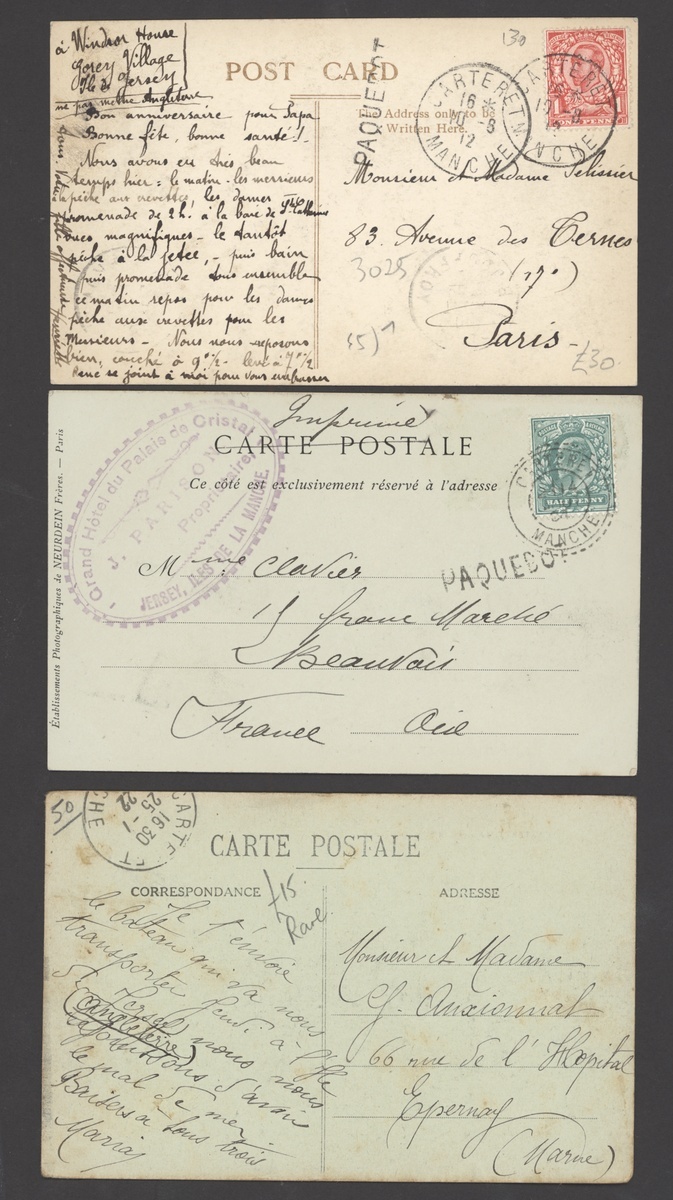 à Windsor House
Gorey Village
Ile de Jersey
ne pas mettre Angleterre
POST CARD
130
PAQUEBOT
CARTERET
16 *
10 - 8
12
MANCHE
ONE PENNY
The Address only to be
Written Here.
Bon anniversaire pour Papa
Bonne fête, bonne santé!
Nous avons eu très beau
temps hier: le matin les messieurs
à la pêche aux crevettes, les dames
promenade de 2h. à la baie de Ste Catherine
vues magnifiques - le tantôt
pêche à la jetée, - puis bain
puis promenade tous ensemble
ce matin repos pour les dames
pêche aux crevettes pour les
Messieurs - Nous nous reposons
bien, couché à 9h ½ - levé à 7h ½
René se joint à moi pour vous embrasser
Monsieur et Madame Pelissier
83. Avenue des Ternes
(17e)
Paris
3025
£30
Imprimé
CARTE POSTALE
Ce côté est exclusivement réservé à l'adresse
Établissements Photographiques de NEURDEIN Frères. — Paris
Grand Hôtel du Palais de Cristal
J. PARISON
Propriétaire
JERSEY, ILES DE LA MANCHE
HALF PENNY
CARTERET
MANCHE
PAQUEBOT
Mme Clavier
15 Grand Marché
Beauvais
France Oise
50/
CARTERET
16 30
25 - 1
22
CHE
CARTE POSTALE
CORRESPONDANCE
ADRESSE
£15
Rare
Je t'envoie
le bateau qui va nous
transporter jeudi à l'Ile
de Jersey
(Angleterre) nous nous
réjouissons d'avoir
le mal de mer
Baisers à tous trois
Maria
Monsieur et Madame
G. Anxionnat
66 rue de l'Hopital
Epernay
(Marne)